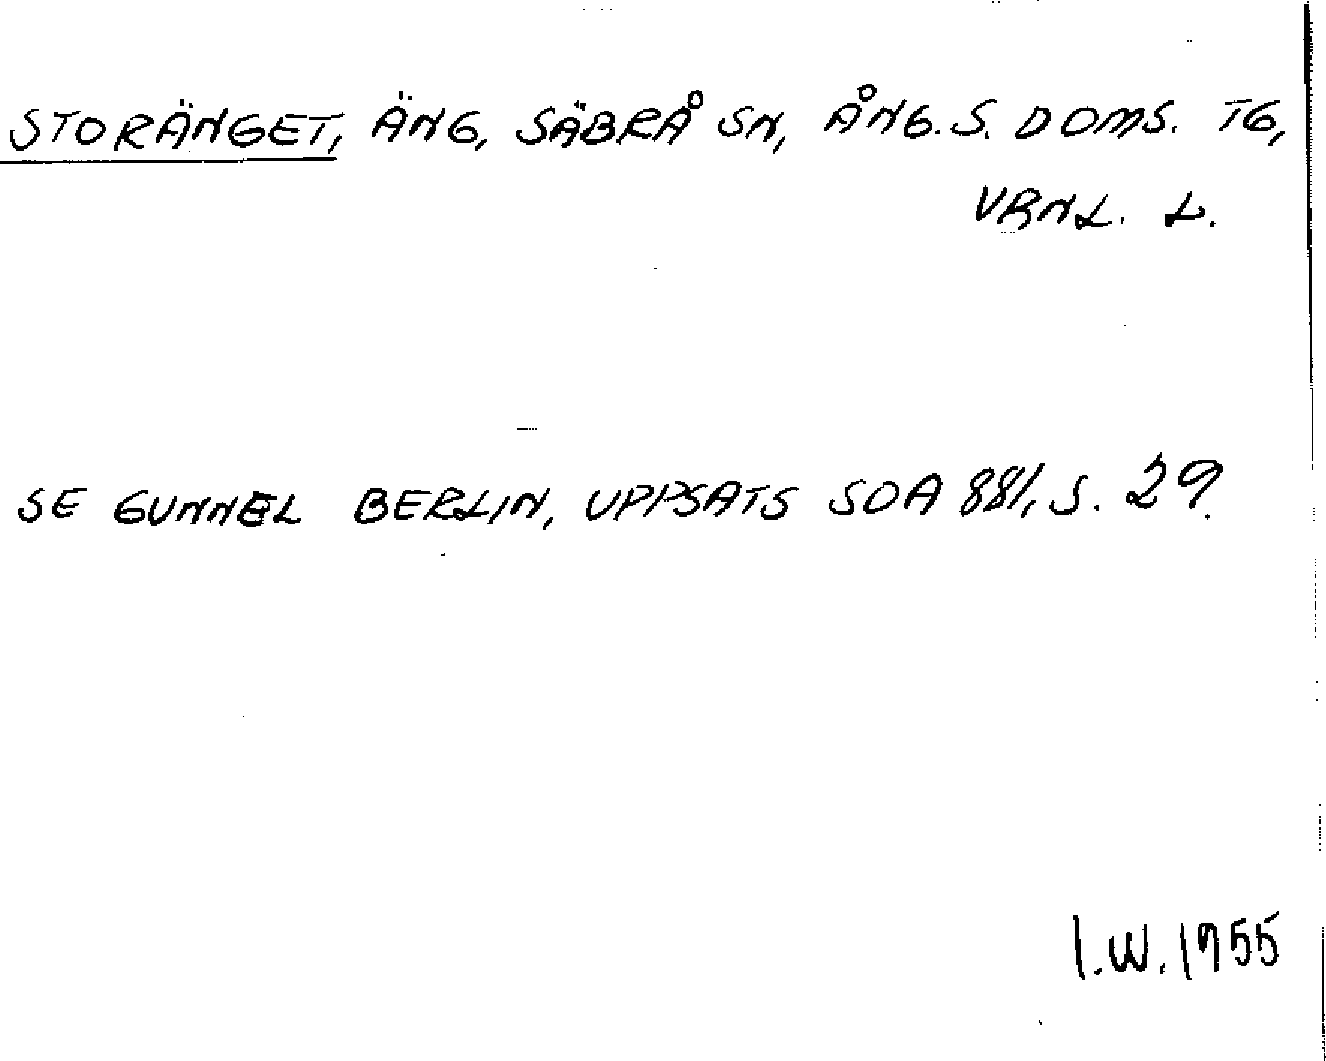 STORÄNGET, ÄNG, SÄBRÅ SN, ÅNG. S. DOMS. TG,
VRNL. L.
SE GUNNEL BERLIN, UPPSATS SOA 881, S. 29.
I.W. 1955